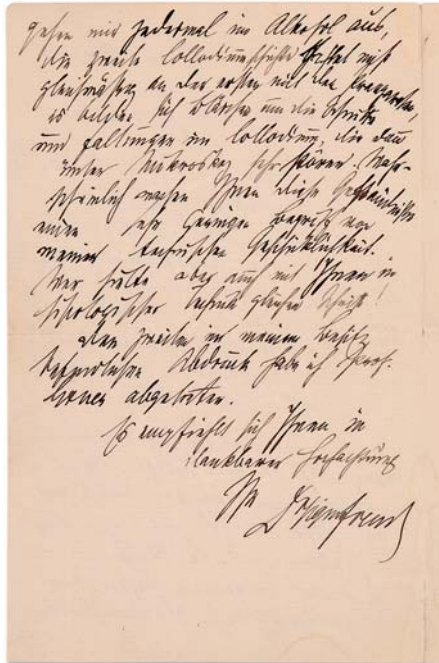 gehen mir jedesmal im Alkohol aus,
die zweite Collodiumschichte haftet nicht
gleichmäßig an der ersten mit den
es bilden sich Bläschen um die Schnitte
und Faltungen im Collodium, die dann
unter Mikroskop sehr stören. Wahr-
scheinlich machen Ihnen diese Geständnisse
einen sehr geringen Begriff von
meiner technischen Geschicklichkeit.
Wer hielte aber auch mit Ihnen in
histologischer Technik gleichen Schritt!
Den zweiten in meinem Besitz
befindlichen Abdruck habe ich Prof.
abgetreten.
Es empfiehlt sich Ihnen in
dankbarer Hochachtung
Ihr Dr Sigm Freud